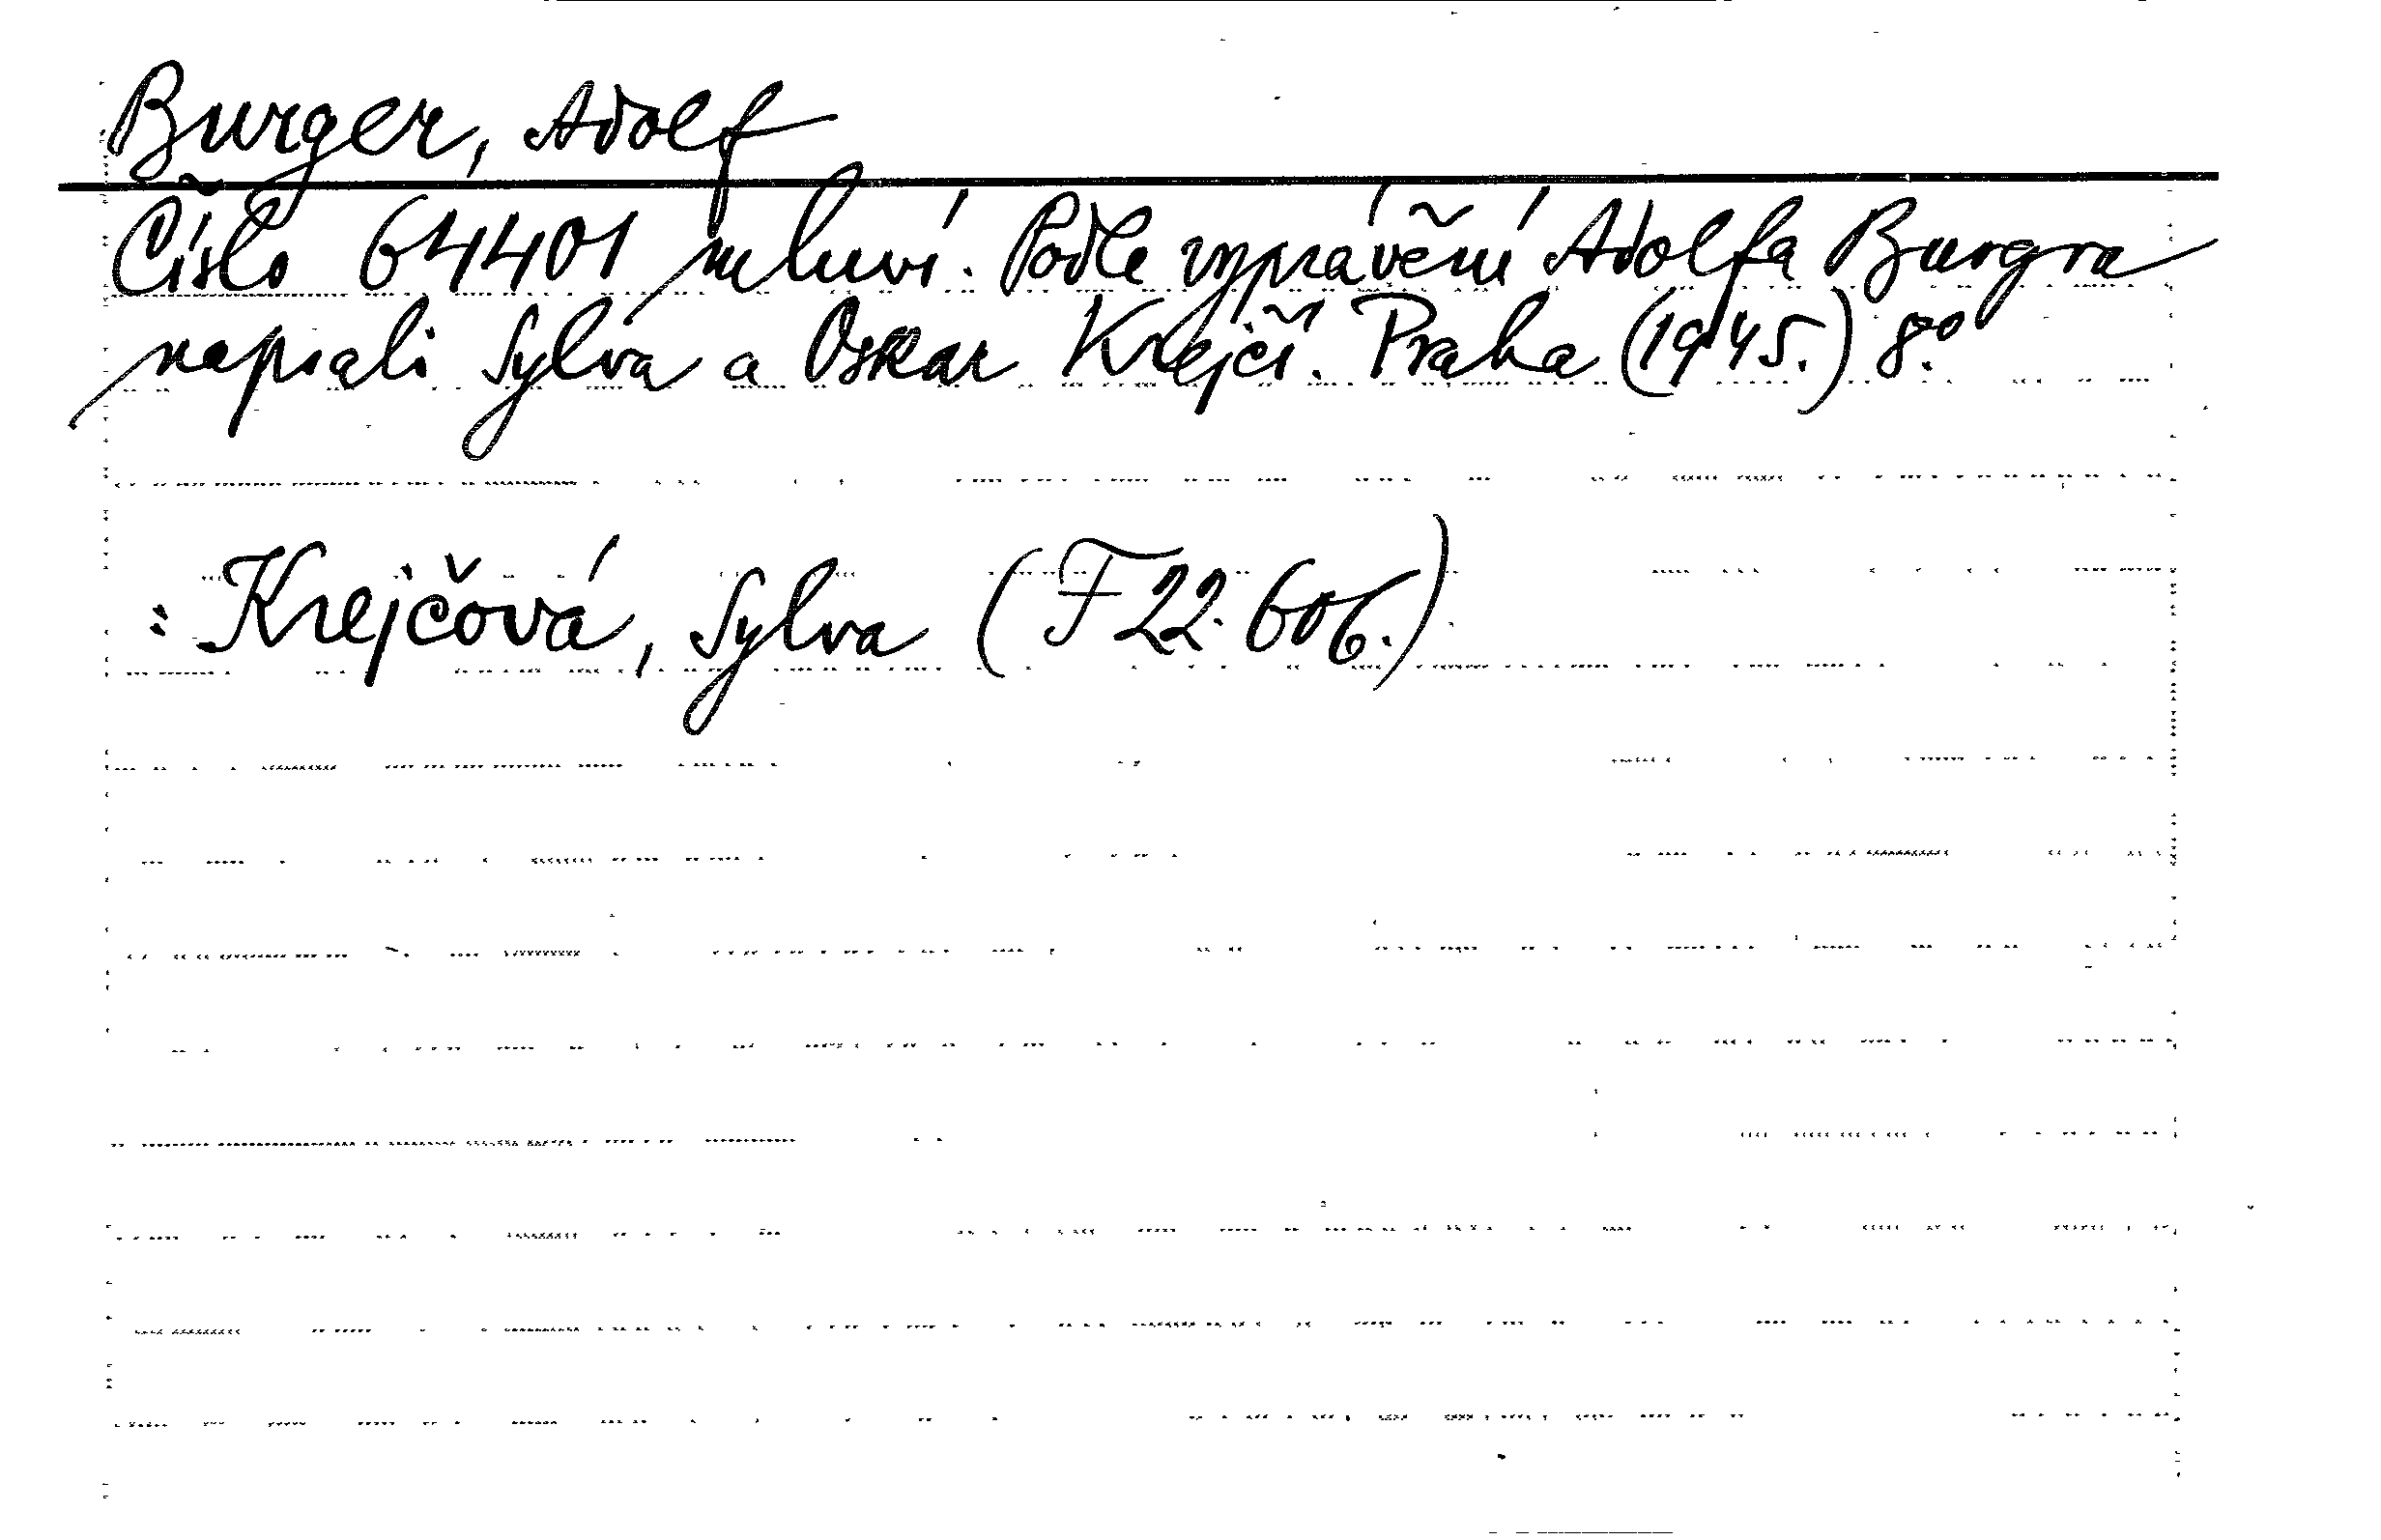 Burger, Adolf
Číslo 64401 mluví. Podle vyprávění Adolfa Burgra
napsali Sylva a Oskar Krejčí. Praha (1945.) 8.°
: Krejčová, Sylva (F 22.606.)